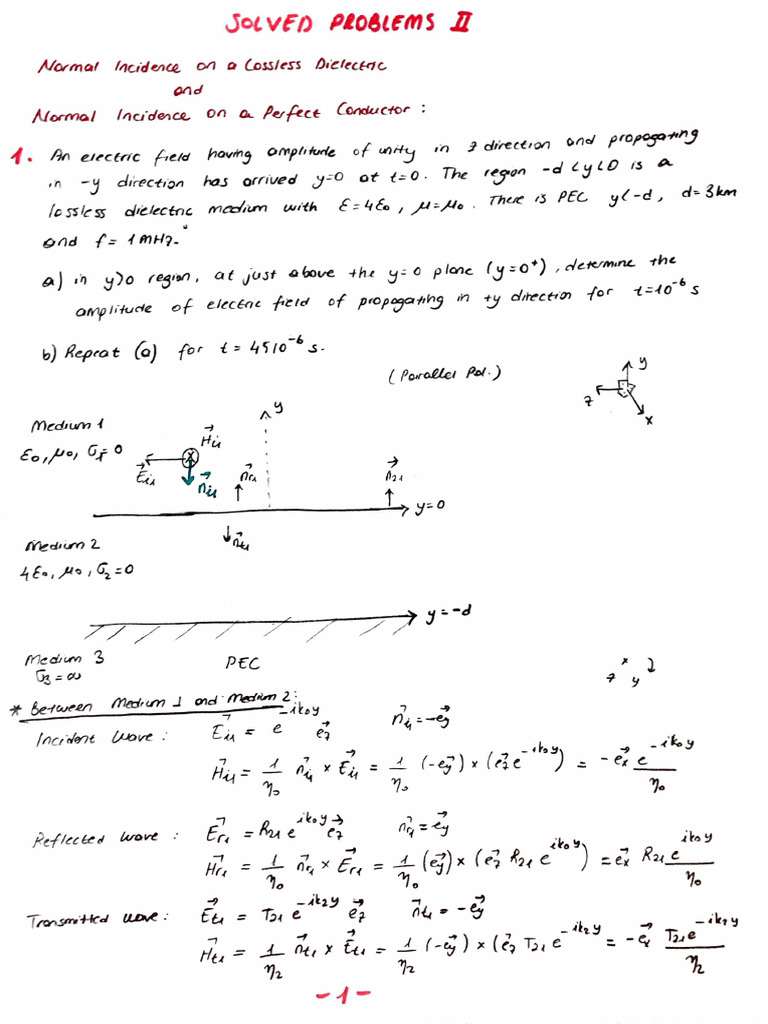 SOLVED PROBLEMS II
Normal Incidence on a Lossless Dielectric
and
Normal Incidence on a Perfect Conductor :
1. An electric field having amplitude of unity in z direction and propogating
in -y direction has arrived y=0 at t=0. The region -d<y<0 is a
lossless dielectric medium with ε=4ε₀, μ=μ₀. There is PEC y<-d, d=3km
and f=1MHz.
a) in y>0 region, at just above the y=0 plane (y=0⁺), determine the
amplitude of electric field of propogating in +y direction for t=10⁻⁶ s
b) Repeat (a) for t=4510⁻⁶ s.
(Parallel Pol.)
y
z
x
Medium 1
ε₀, μ₀, σ₁=0
y
H⃗i1
E⃗i1
n⃗i1
n⃗r1
n⃗21
y=0
n⃗t1
Medium 2
4ε₀, μ₀, σ₂=0
y=-d
Medium 3
σ3=∞
PEC
x
z y
* Between Medium 1 and Medium 2:
Incident Wave : E⃗i1 = e^(-ik₀y) e⃗z n⃗i1=-e⃗y
H⃗i1 = 1/η₀ n⃗i1 × E⃗i1 = 1/η₀ (-e⃗y) × (e⃗z e^(-ik₀y)) = -e⃗x e^(-ik₀y)/η₀
Reflected wave : E⃗r1 = R21 e^(ik₀y) e⃗z n⃗r1=e⃗y
H⃗r1 = 1/η₀ n⃗r1 × E⃗r1 = 1/η₀ (e⃗y) × (e⃗z R21 e^(ik₀y)) = e⃗x R21 e^(ik₀y)/η₀
Transmitted wave : E⃗t1 = T21 e^(-ik₂y) e⃗z n⃗t1 = -e⃗y
H⃗t1 = 1/η₂ n⃗t1 × E⃗t1 = 1/η₂ (-e⃗y) × (e⃗z T21 e^(-ik₂y)) = -e⃗x T21 e^(-ik₂y)/η₂
-1-